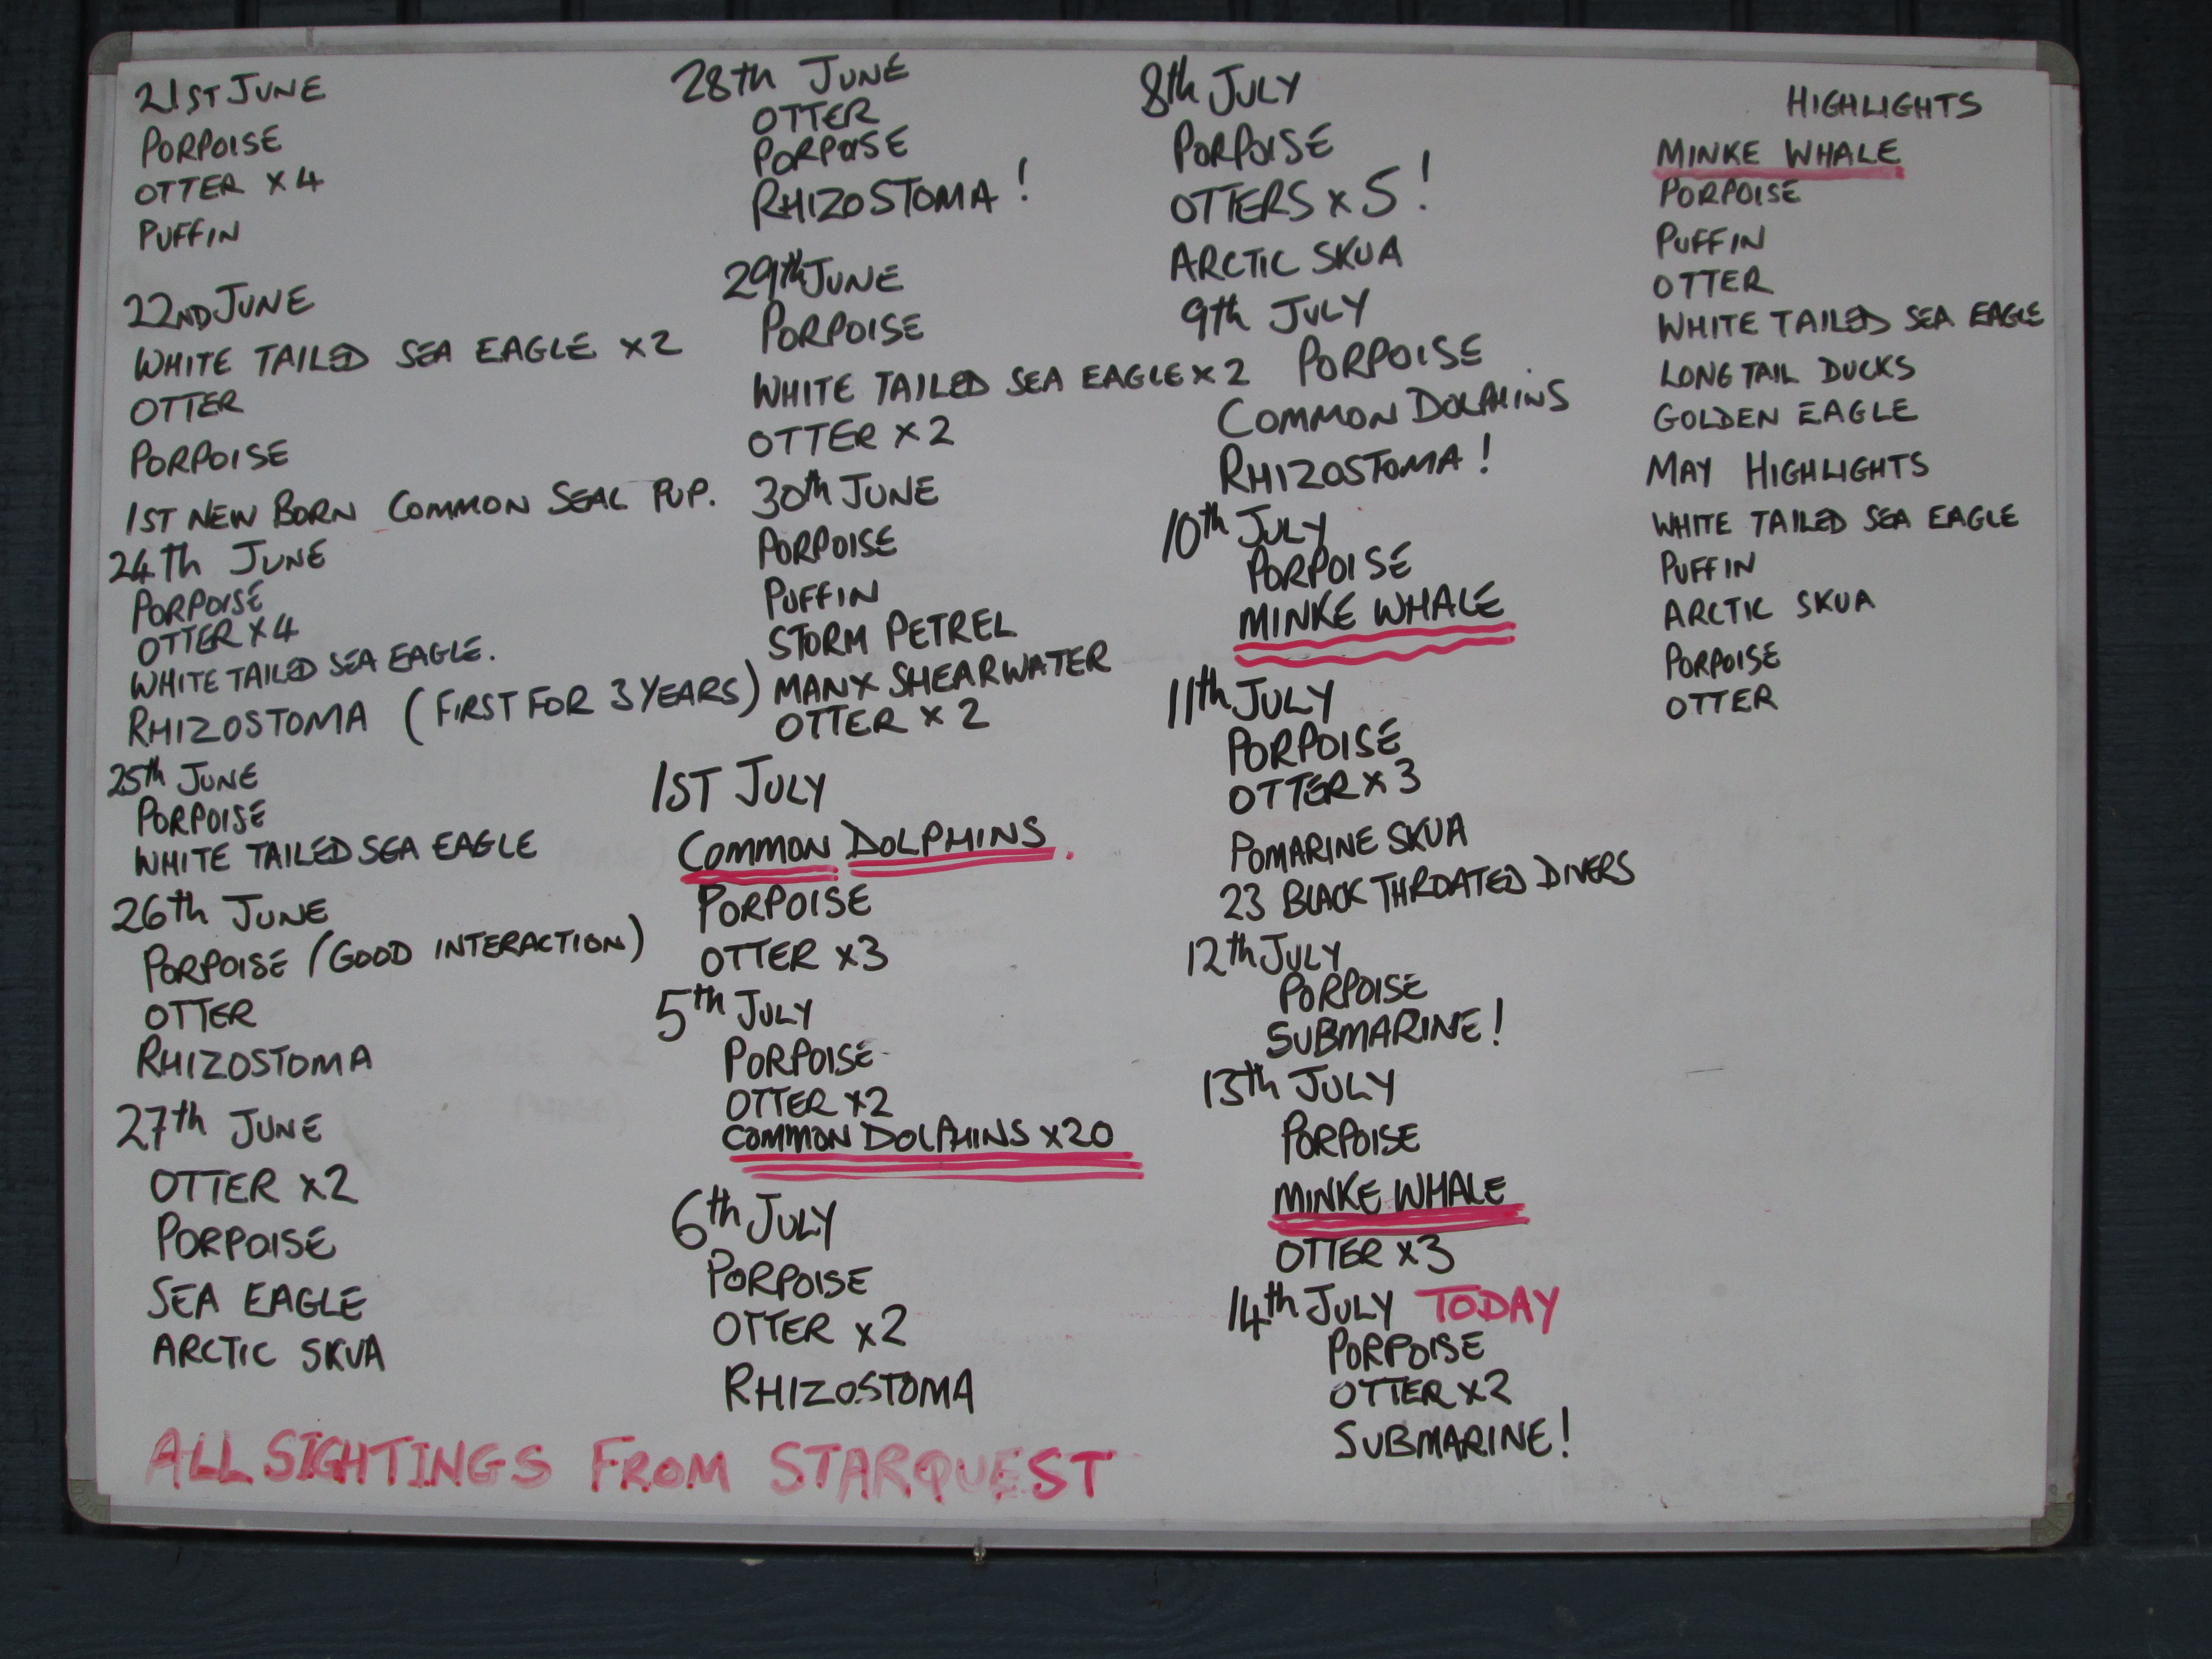 21ST JUNE
PORPOISE
OTTER X 4
PUFFIN
22ND JUNE
WHITE TAILED SEA EAGLE X2
OTTER
PORPOISE
1ST NEW BORN COMMON SEAL PUP.
24th JUNE
PORPOISE
OTTER X 4
WHITE TAILED SEA EAGLE.
RHIZOSTOMA (FIRST FOR 3 YEARS)
25th JUNE
PORPOISE
WHITE TAILED SEA EAGLE
26th JUNE
PORPOISE (GOOD INTERACTION)
OTTER
RHIZOSTOMA
27th JUNE
OTTER X2
PORPOISE
SEA EAGLE
ARCTIC SKUA
28th JUNE
OTTER
PORPOISE
RHIZOSTOMA!
29th JUNE
PORPOISE
WHITE TAILED SEA EAGLE X 2
OTTER X 2
30th JUNE
PORPOISE
PUFFIN
STORM PETREL
MANX SHEARWATER
OTTER X 2
1ST JULY
COMMON DOLPHINS.
PORPOISE
OTTER X3
5th JULY
PORPOISE
OTTER X2
COMMON DOLPHINS X20
6th JULY
PORPOISE
OTTER X2
RHIZOSTOMA
8th JULY
PORPOISE
OTTERS X 5!
ARCTIC SKUA
9th JULY
PORPOISE
COMMON DOLPHINS
RHIZOSTOMA!
10th JULY
PORPOISE
MINKE WHALE
11th JULY
PORPOISE
OTTER X 3
POMARINE SKUA
23 BLACK THROATED DIVERS
12th JULY
PORPOISE
SUBMARINE!
13th JULY
PORPOISE
MINKE WHALE
OTTER X3
14th JULY TODAY
PORPOISE
OTTER X2
SUBMARINE!
HIGHLIGHTS
MINKE WHALE
PORPOISE
PUFFIN
OTTER
WHITE TAILED SEA EAGLE
LONG TAIL DUCKS
GOLDEN EAGLE
MAY HIGHLIGHTS
WHITE TAILED SEA EAGLE
PUFFIN
ARCTIC SKUA
PORPOISE
OTTER
ALL SIGHTINGS FROM STARQUEST